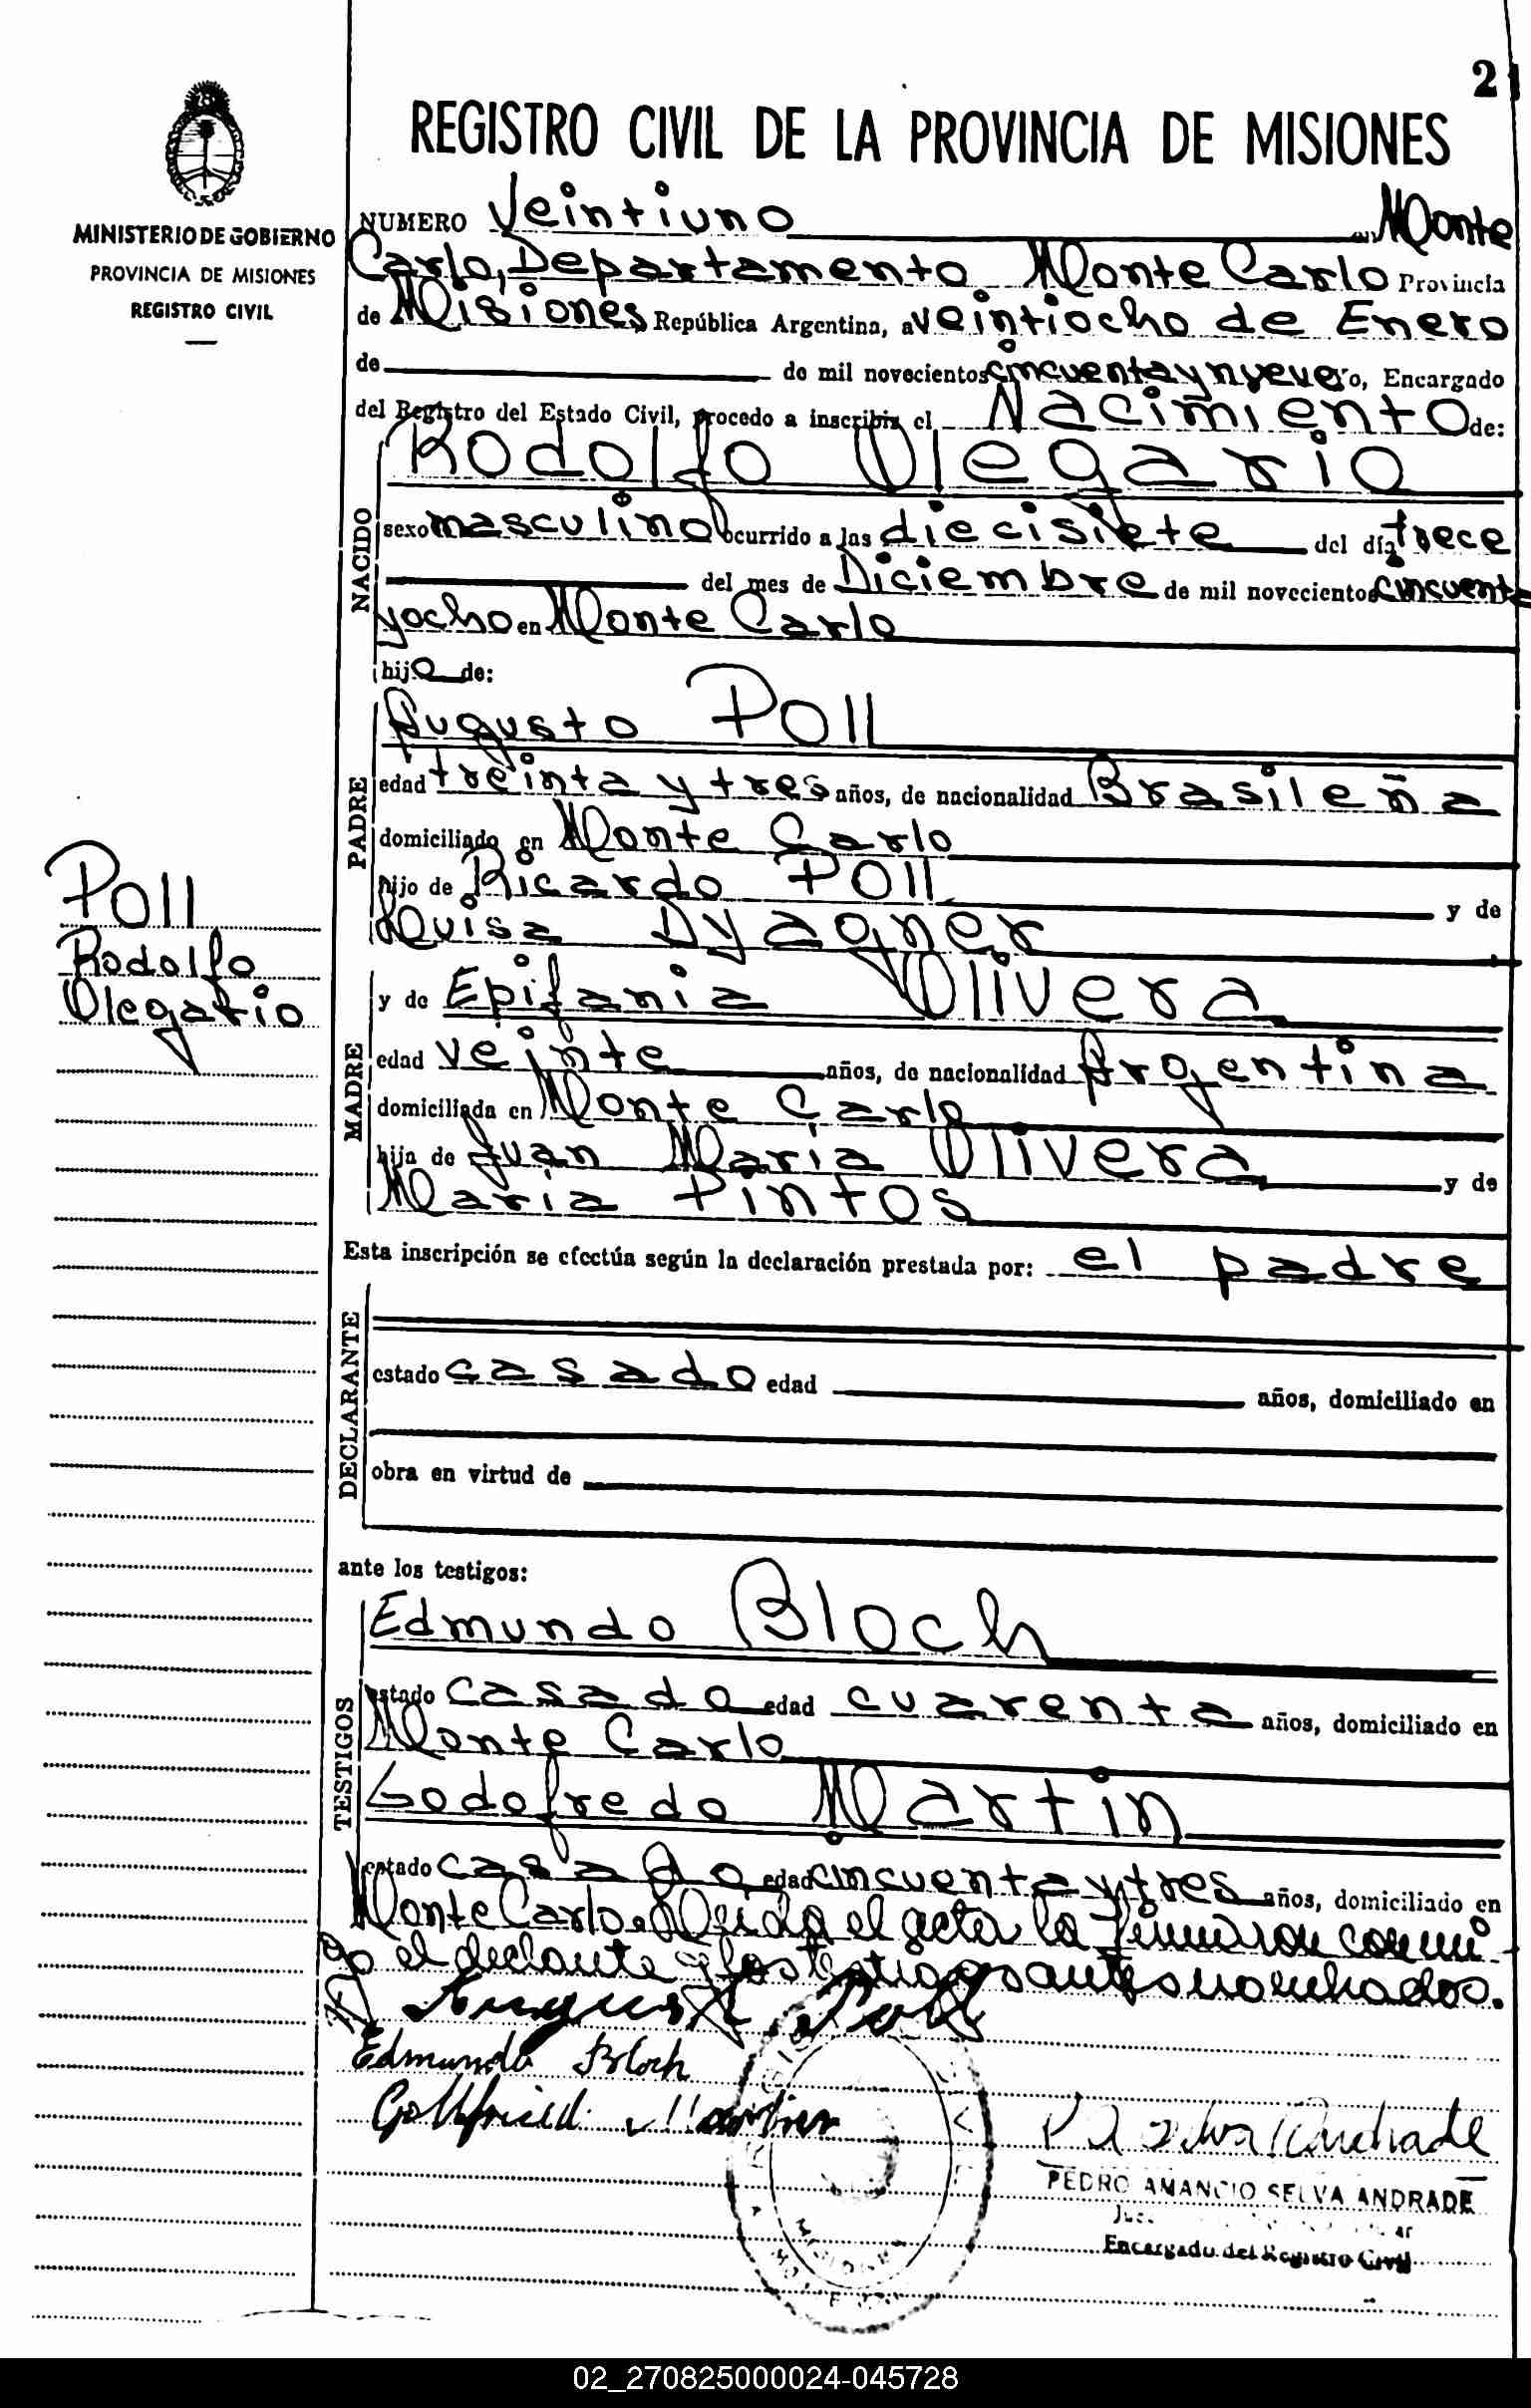 21
REGISTRO CIVIL DE LA PROVINCIA DE MISIONES
MINISTERIO DE GOBIERNO
PROVINCIA DE MISIONES
REGISTRO CIVIL
NUMERO Veintiuno en Monte
Carlo, Departamento Monte Carlo Provincia
de Misiones República Argentina, a veintiocho de Enero
de de mil novecientos cincuenta y nueve yo, Encargado
del Registro del Estado Civil, procedo a inscribir el Nacimiento de:
NACIDO
Rodolfo Olegario
sexo masculino ocurrido a las diecisiete del día trece
del mes de Diciembre de mil novecientos cincuenta
y ocho en Monte Carlo
hijo de:
PADRE
Augusto Poll
edad treinta y tres años, de nacionalidad Brasileña
domiciliado en Monte Carlo
hijo de Ricardo Poll y de
Luisa Dyagner
Poll
Rodolfo
Olegario
MADRE
y de Epifania Olivera
edad veinte años, de nacionalidad Argentina
domiciliada en Monte Carlo
hija de Juan Maria Olivera y de
Maria Pintos
Esta inscripción se efectúa según la declaración prestada por: el padre
DECLARANTE
estado casado edad años, domiciliado en
obra en virtud de
ante los testigos:
TESTIGOS
Edmundo Bloch
estado casado edad cuarenta años, domiciliado en
Monte Carlo
Godofredo Martin
estado casado edad cincuenta y tres años, domiciliado en
Monte Carlo. Leida el acta la firmaron conmi
go el declante y los testigos antes nombrados.
August Poll
Edmundo Bloch
Gottfried Martin
P A Selva Andrade
PEDRO AMANCIO SELVA ANDRADE
Encargado del Registro Civil
02_270825000024-045728